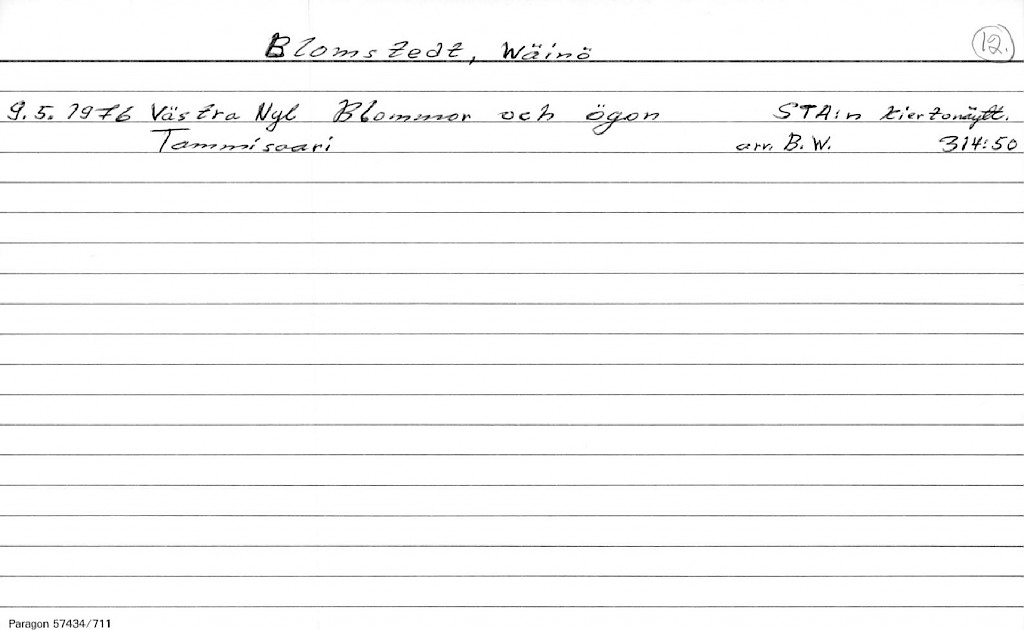 Blomstedt, Wäinö 12.
9.5.1976 Västra Nyl Blommor och ögon STA:n kiertonäytt.
Tammisaari arv. B.W. 314:50
Paragon 57434/711